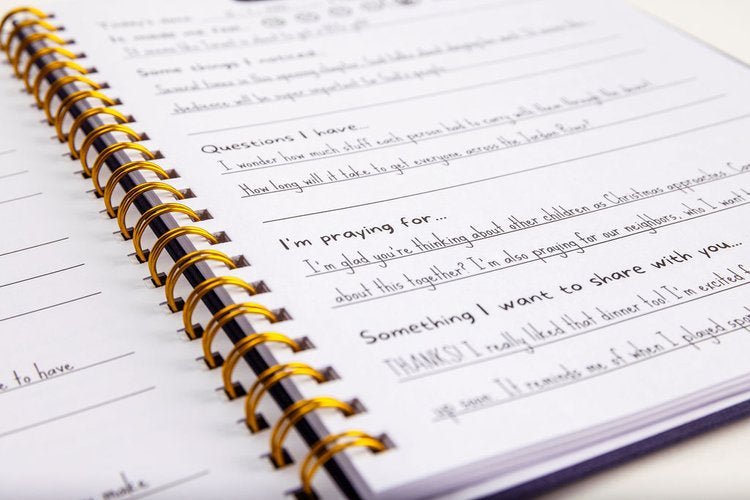 to have
make
Today's date
It made me feel
Some things I noticed
obedience will be super important to God's people.
Questions I have...
I wonder how much stuff each person had to carry with them through the desert!
How long will it take to get everyone across the Jordan River?
I'm praying for...
I'm glad you're thinking about other children as Christmas approaches.
about this together? I'm also praying for our neighbors, who I want
Something I want to share with you...
THANKS! I really liked that dinner too! I'm excited
up soon. It reminds me of when I played